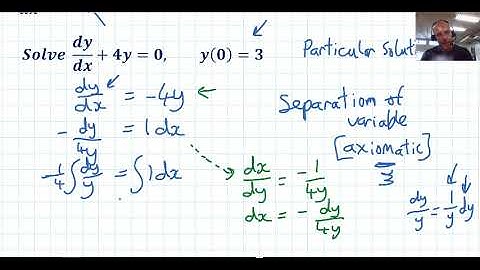 Solve dy/dx + 4y = 0, y(0) = 3
Particular
dy/dx = -4y
- dy/4y = 1dx
-1/4 ∫ dy/y = ∫ 1dx
Separation of
variable
[axiomatic]
dx/dy = -1/4y
dx = - dy/4y
dy/y = 1/y dy